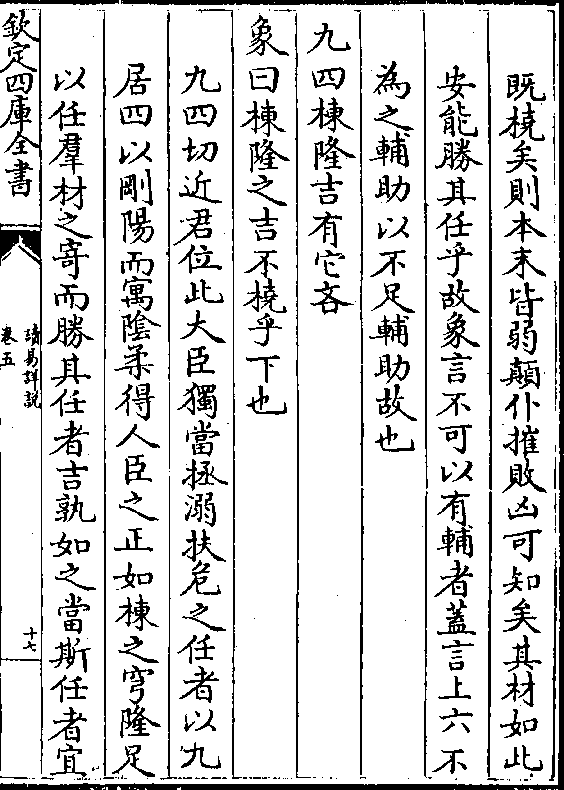 既橈矣則本末皆弱顛仆摧敗凶可知矣其材如此
安能勝其任乎故象言不可以有輔者蓋言上六不
為之輔助以不足輔助故也
九四棟隆吉有它吝
象曰棟隆之吉不橈乎下也
九四切近君位此大臣獨當拯溺扶危之任者以九
居四以剛陽而寓陰柔得人臣之正如棟之穹隆足
以任羣材之寄而勝其任者吉孰如之當斯任者宜
欽定四庫全書
讀易詳說
卷五
十七